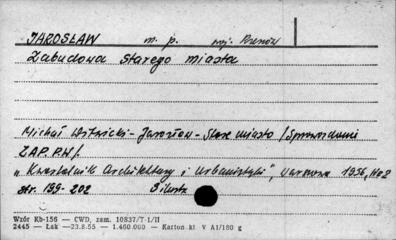 JAROSŁAW m. p. woj. Rzeszów
Zabudowa Starego miasta
Michał Witwicki - Jarosław - Stare miasto /Sprawozdanie
ZAP. P.N/.
"Kwartalnik Architektury i Urbanistyki", Warszawa 1956, No 2
str. 199-202
Wzór Kb-156 — CWD, zam. 10837/T-1/II
2445 — Łak —23.8.55 — 1.460.000 — Karton kl V A1/180 g